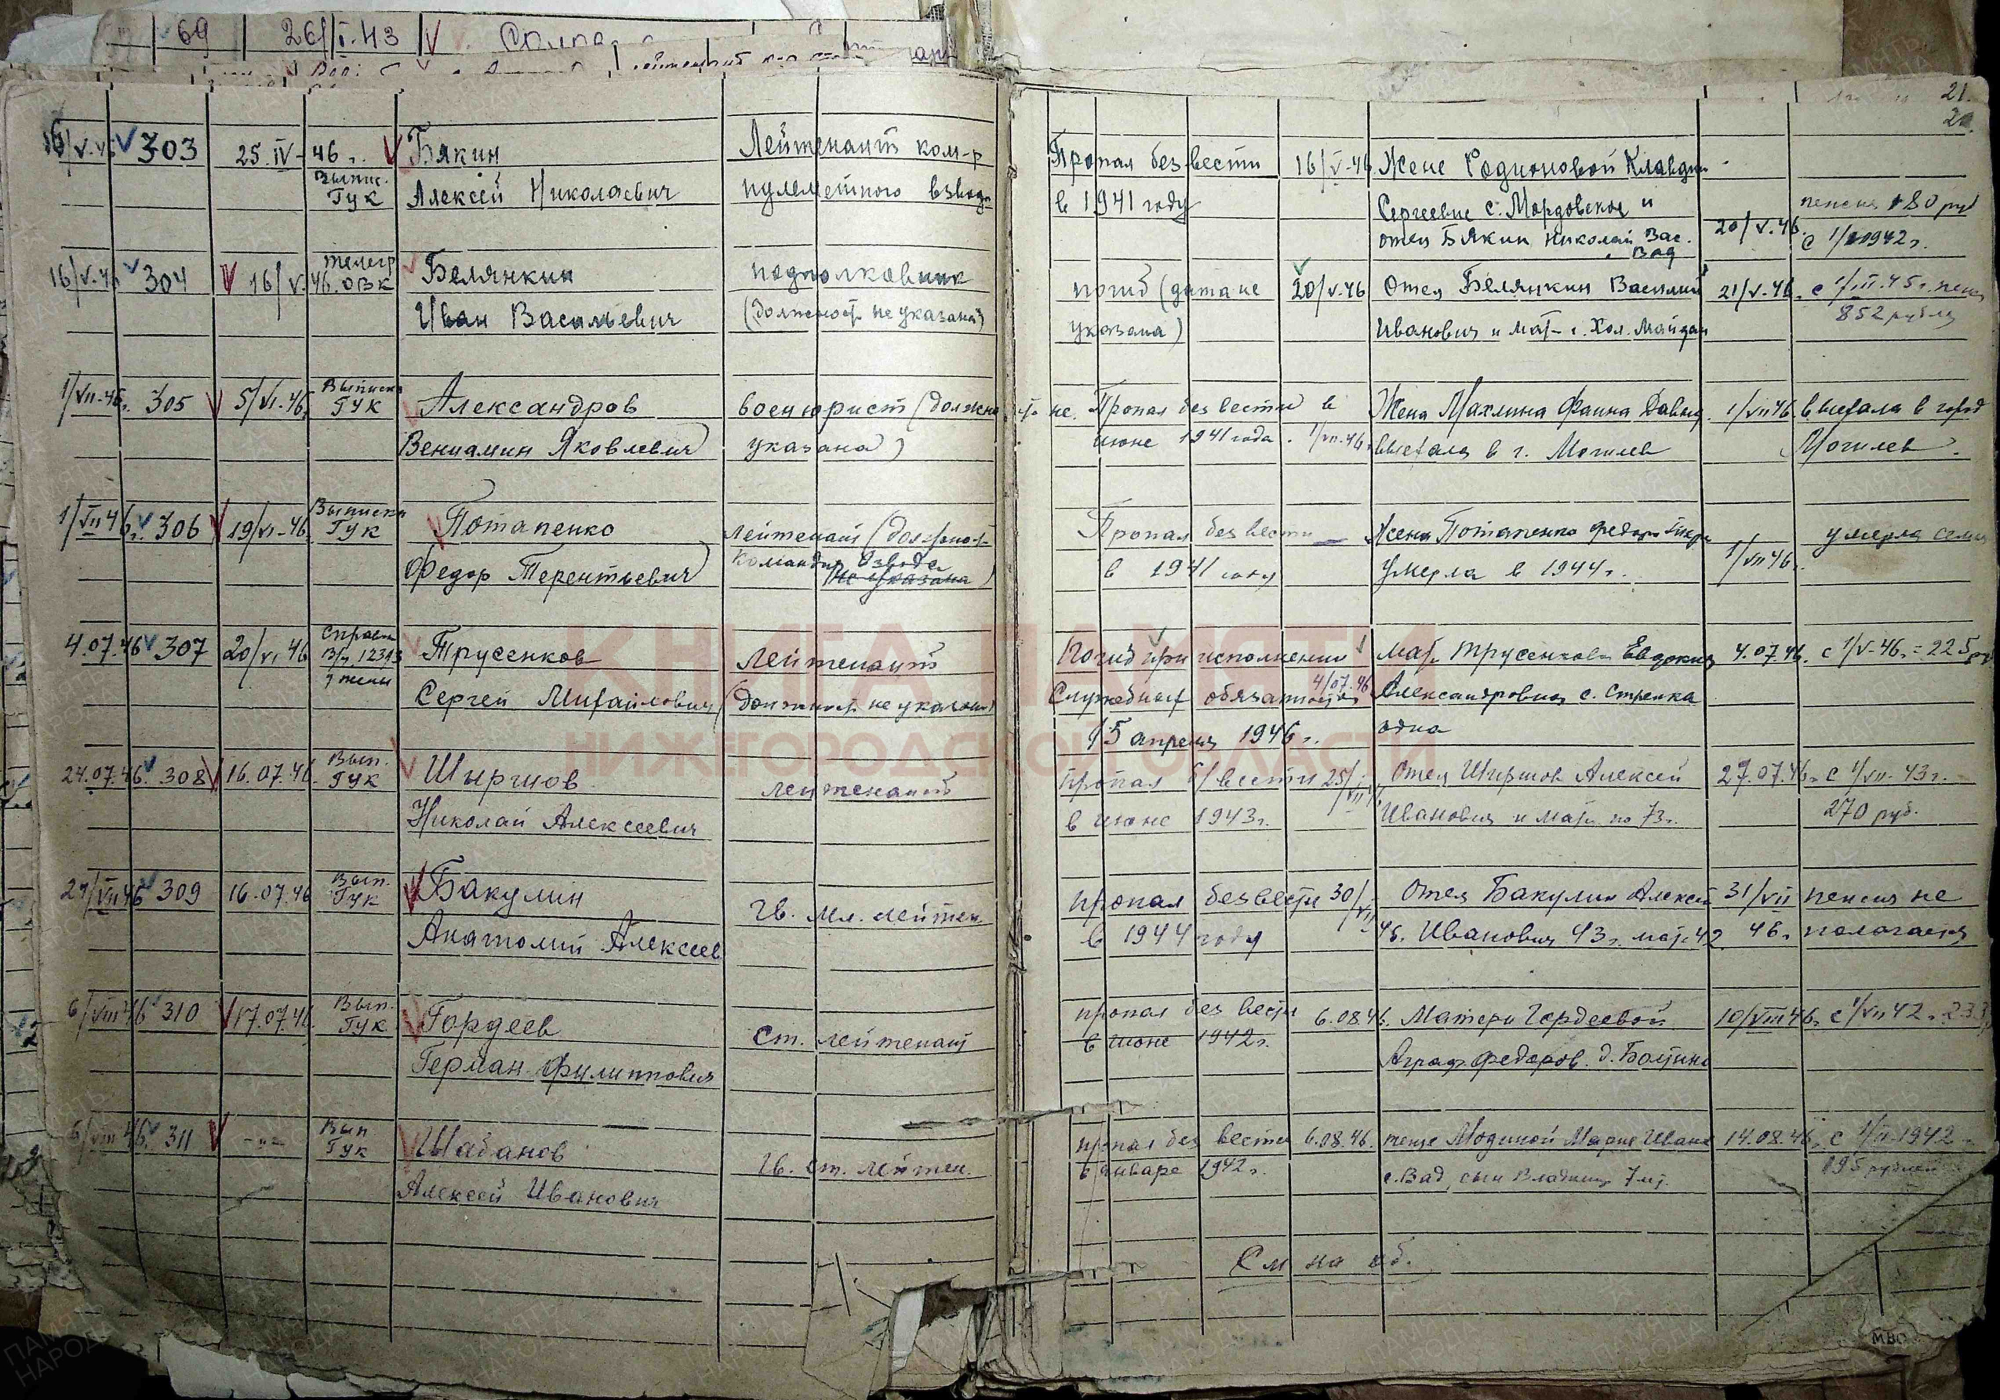 69 26/I.43
21.
20.
16/V.46 303 25.IV-46г. Бякин Лейтенант ком-р Пропал без вести 16/V-46 Жене Родионовой Клавдии
Выпис. ГУК Алексей Николаевич пулеметного взвода в 1941 году Сергеевне с. Мордовское и 20/V.46. пенсия 180 руб
отец Бякин Николай Вас. с 1/1942г.
Вад
16/V-46 304 16/V.46. телегр. ОВК Белянкин подполковник погиб (дата не 20/V.46 Отец Белянкин Василий 21/V-46. с 1/III.45г. пенс
Иван Васильевич (должность не указана) указана) Иванович и мать г. Хол. Майдан 852 рубля
1/VII-46г. 305 5/VI-46. Выписка ГУК Александров военюрист (должность не Пропал без вести в Жена Махлина Фаина Давыд. 1/VII 46 выехала в город
Вениамин Яковлевич указана) июне 1941 года. 1/VII-46. выехала в г. Могилев Могилев.
1/VII 46г. 306 19/VI-46. Выписка ГУК Потапенко Лейтенант (должност. Пропал без вести Жена Потапенко умерла семья
Федор Терентьевич командир взвода не указана) в 1941 году умерла в 1944г. 1/VII 46г.
4.07.46 307 20/VI 46 Справка В/ч 12393 Трусенков Лейтенант Погиб при исполнении мать Трусенкова Евдокия 4.07.46. с 1/V-46г.=225 р
Сергей Михайлович (должность не указана) служебных обязанностей 4/07.46 Александровна с. Стрелка
15 апреля 1946г. одна
24.07.46. 308 16.07.46. Вып. ГУК Шыршов лейтенант пропал б/вести 25/VII Отец Ширшов Алексей 27.07.46г. с 1/VII-43г.
Николай Алексеевич в июне 1943г. Иванович и мать по 73г. 270 руб.
309 16.07.46 Вып. ГУК Бакулин Гв. мл. лейтен. пропал без вести 30/VII Отец Бакулин Алексей 31/VII пенсия не
Анатолий Алексеев в 1944 году 46. Иванович 43г. мать 42 46г. полагается
6/VIII 46 310 17.07.46. Вып. ГУК Гордеев ст. лейтенант пропал без вести 6.08.46. Матери Гордеевой 10/VIII 46г. с 1/VII 42г. 233
Герман Филиппович в июне 1942г. Аграф. Федоров. д. Боґино
6/VIII 46. 311 -"- Вып ГУК Шабанов Гв. ст. лейтен. пропал без вести 6.08.46. теще Модиной Марие Иван 14.08.46. с 1/II-1942
Алексей Иванович в январе 1942г. с. Вад, сын Владимир 7 лет. 195 рублей
См на об.
КНИГА ПАМЯТИ
НИЖЕГОРОДСКОЙ ОБЛАСТИ
ПАМЯТЬ НАРОДА